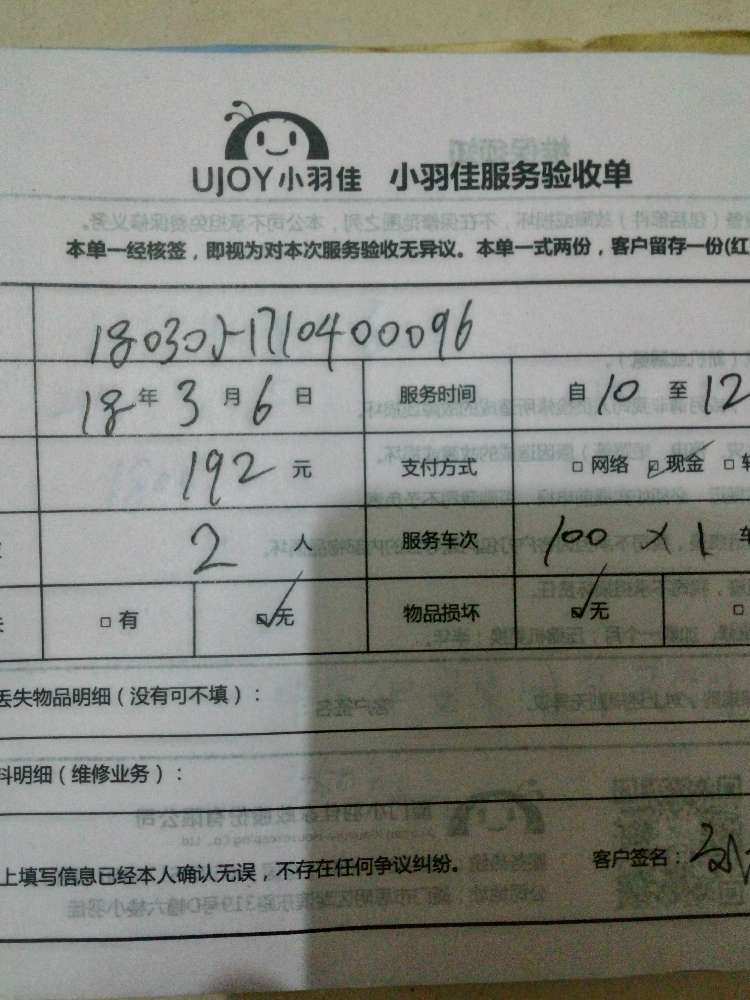 UJOY小羽佳 小羽佳服务验收单
本单一经核签，即视为对本次服务验收无异议。本单一式两份，客户留存一份(红
180305-1710400096
18年3月6日 服务时间 自10至12
192元 支付方式 □网络 ☑现金 □转
2人 服务车次 100 × 1 车
□有 ☑无 物品损坏 ☑无 □
丢失物品明细（没有可不填）：
料明细（维修业务）：
上填写信息已经本人确认无误，不存在任何争议纠纷。 客户签名：